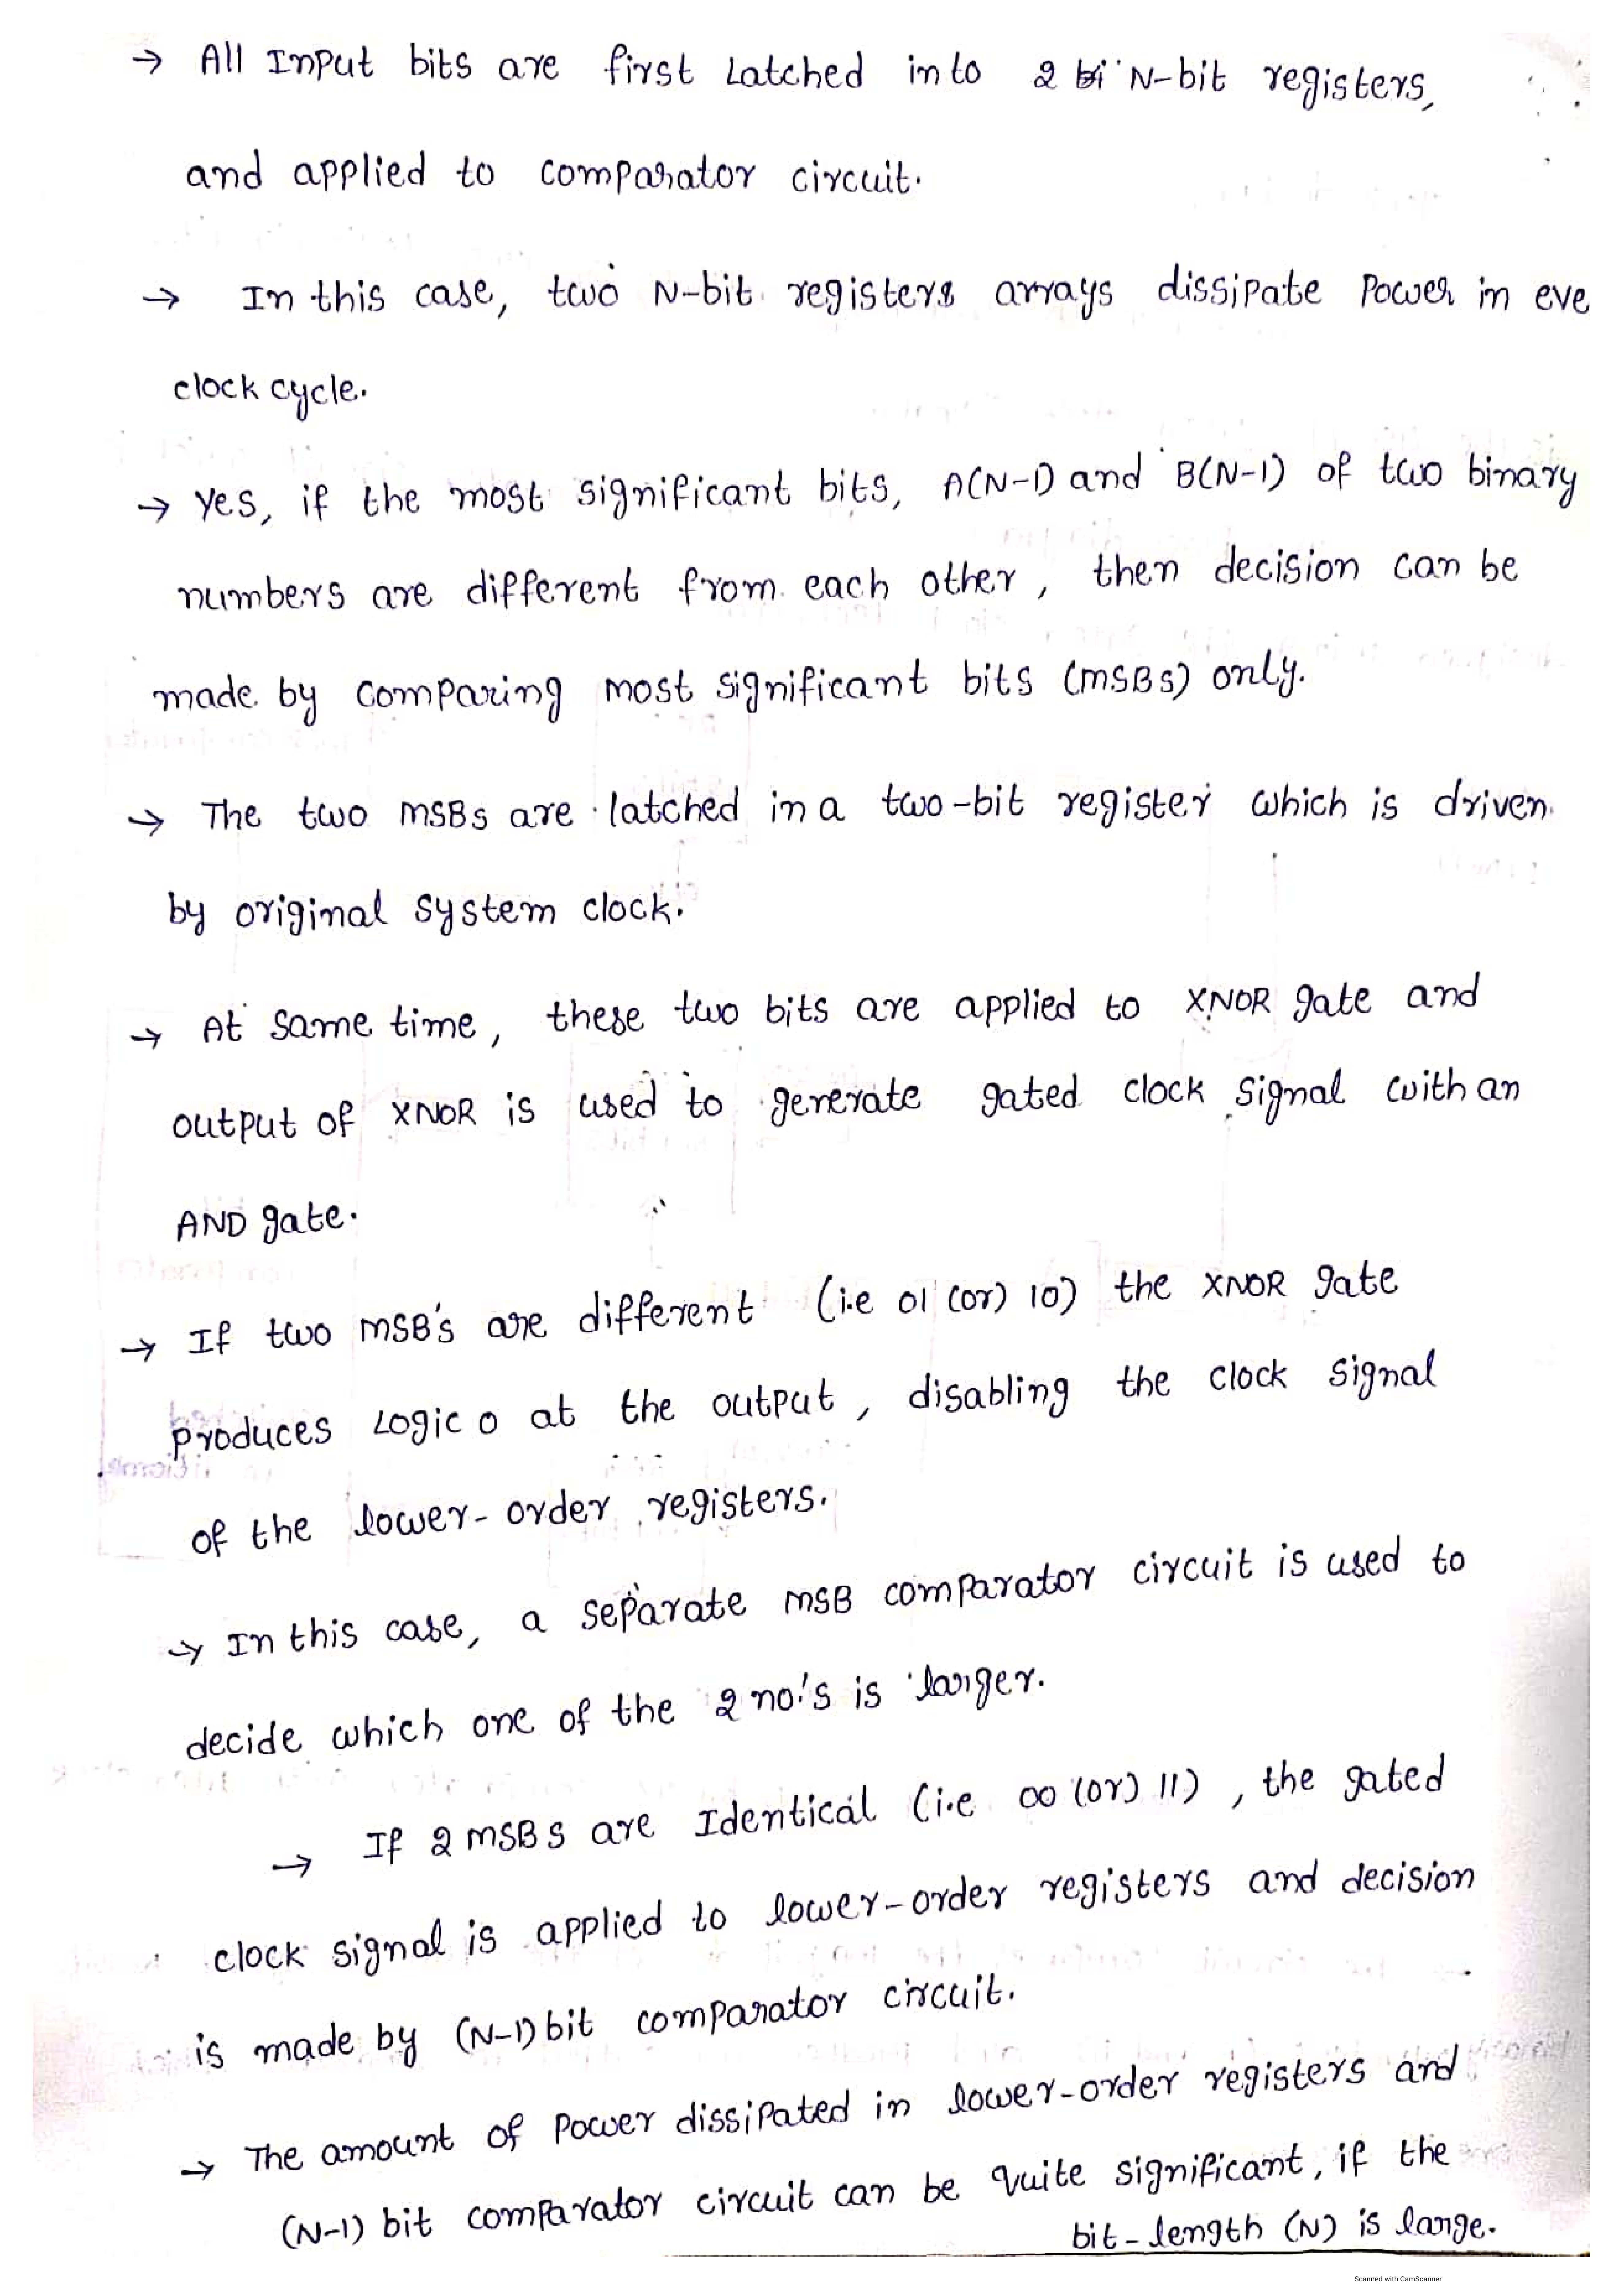 → All Input bits are first Latched into 2 N-bit registers,
and applied to comparator circuit.
→ In this case, two N-bit registers arrays dissipate Power in eve
clock cycle.
→ Yes, if the most significant bits, A(N-1) and B(N-1) of two binary
numbers are different from each other, then decision can be
made by comparing most significant bits (MSBs) only.
→ The two MSBs are latched in a two-bit register which is driven
by original system clock.
→ At same time, these two bits are applied to XNOR gate and
output of XNOR is used to gererate gated clock signal with an
AND gate.
→ If two MSB's are different (i.e 01 (or) 10) the XNOR gate
produces Logic 0 at the output, disabling the clock signal
of the lower-order registers.
→ In this case, a separate MSB comparator circuit is used to
decide which one of the 2 no.'s is larger.
→ If 2 MSBs are Identical (i.e 00 (or) 11), the gated
clock signal is applied to lower-order registers and decision
is made by (N-1) bit comparator circuit.
→ The amount of Power dissipated in lower-order registers and
(N-1) bit comparator circuit can be quite significant, if the
bit-length (N) is large.
Scanned with CamScanner